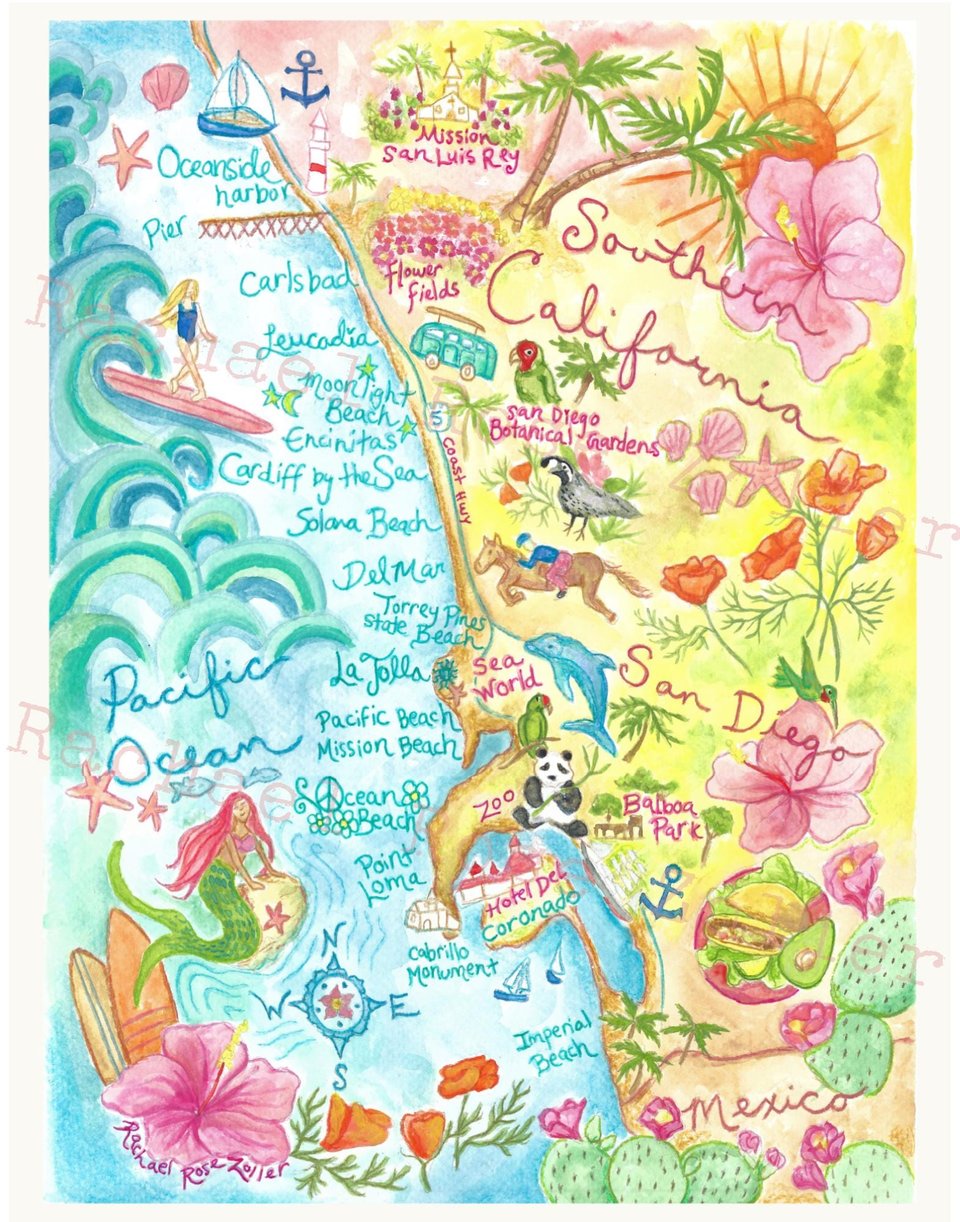 Mission
San Luis Rey
Oceanside
harbor
Pier
Flower
fields
Southern
California
Carlsbad
Leucadia
Moonlight
Beach
Encinitas
Cardiff by the Sea
San Diego
Botanical Gardens
5
Coast Hwy
Solana Beach
Del Mar
Torrey Pines
State Beach
La Jolla
Sea
World
San Diego
Pacific
Ocean
Pacific Beach
Mission Beach
Ocean
Beach
Zoo
Balboa
Park
Point
Loma
Hotel Del
Coronado
Cabrillo
Monument
N
W E
S
Imperial
Beach
Mexico
Rachael Rose Zoller